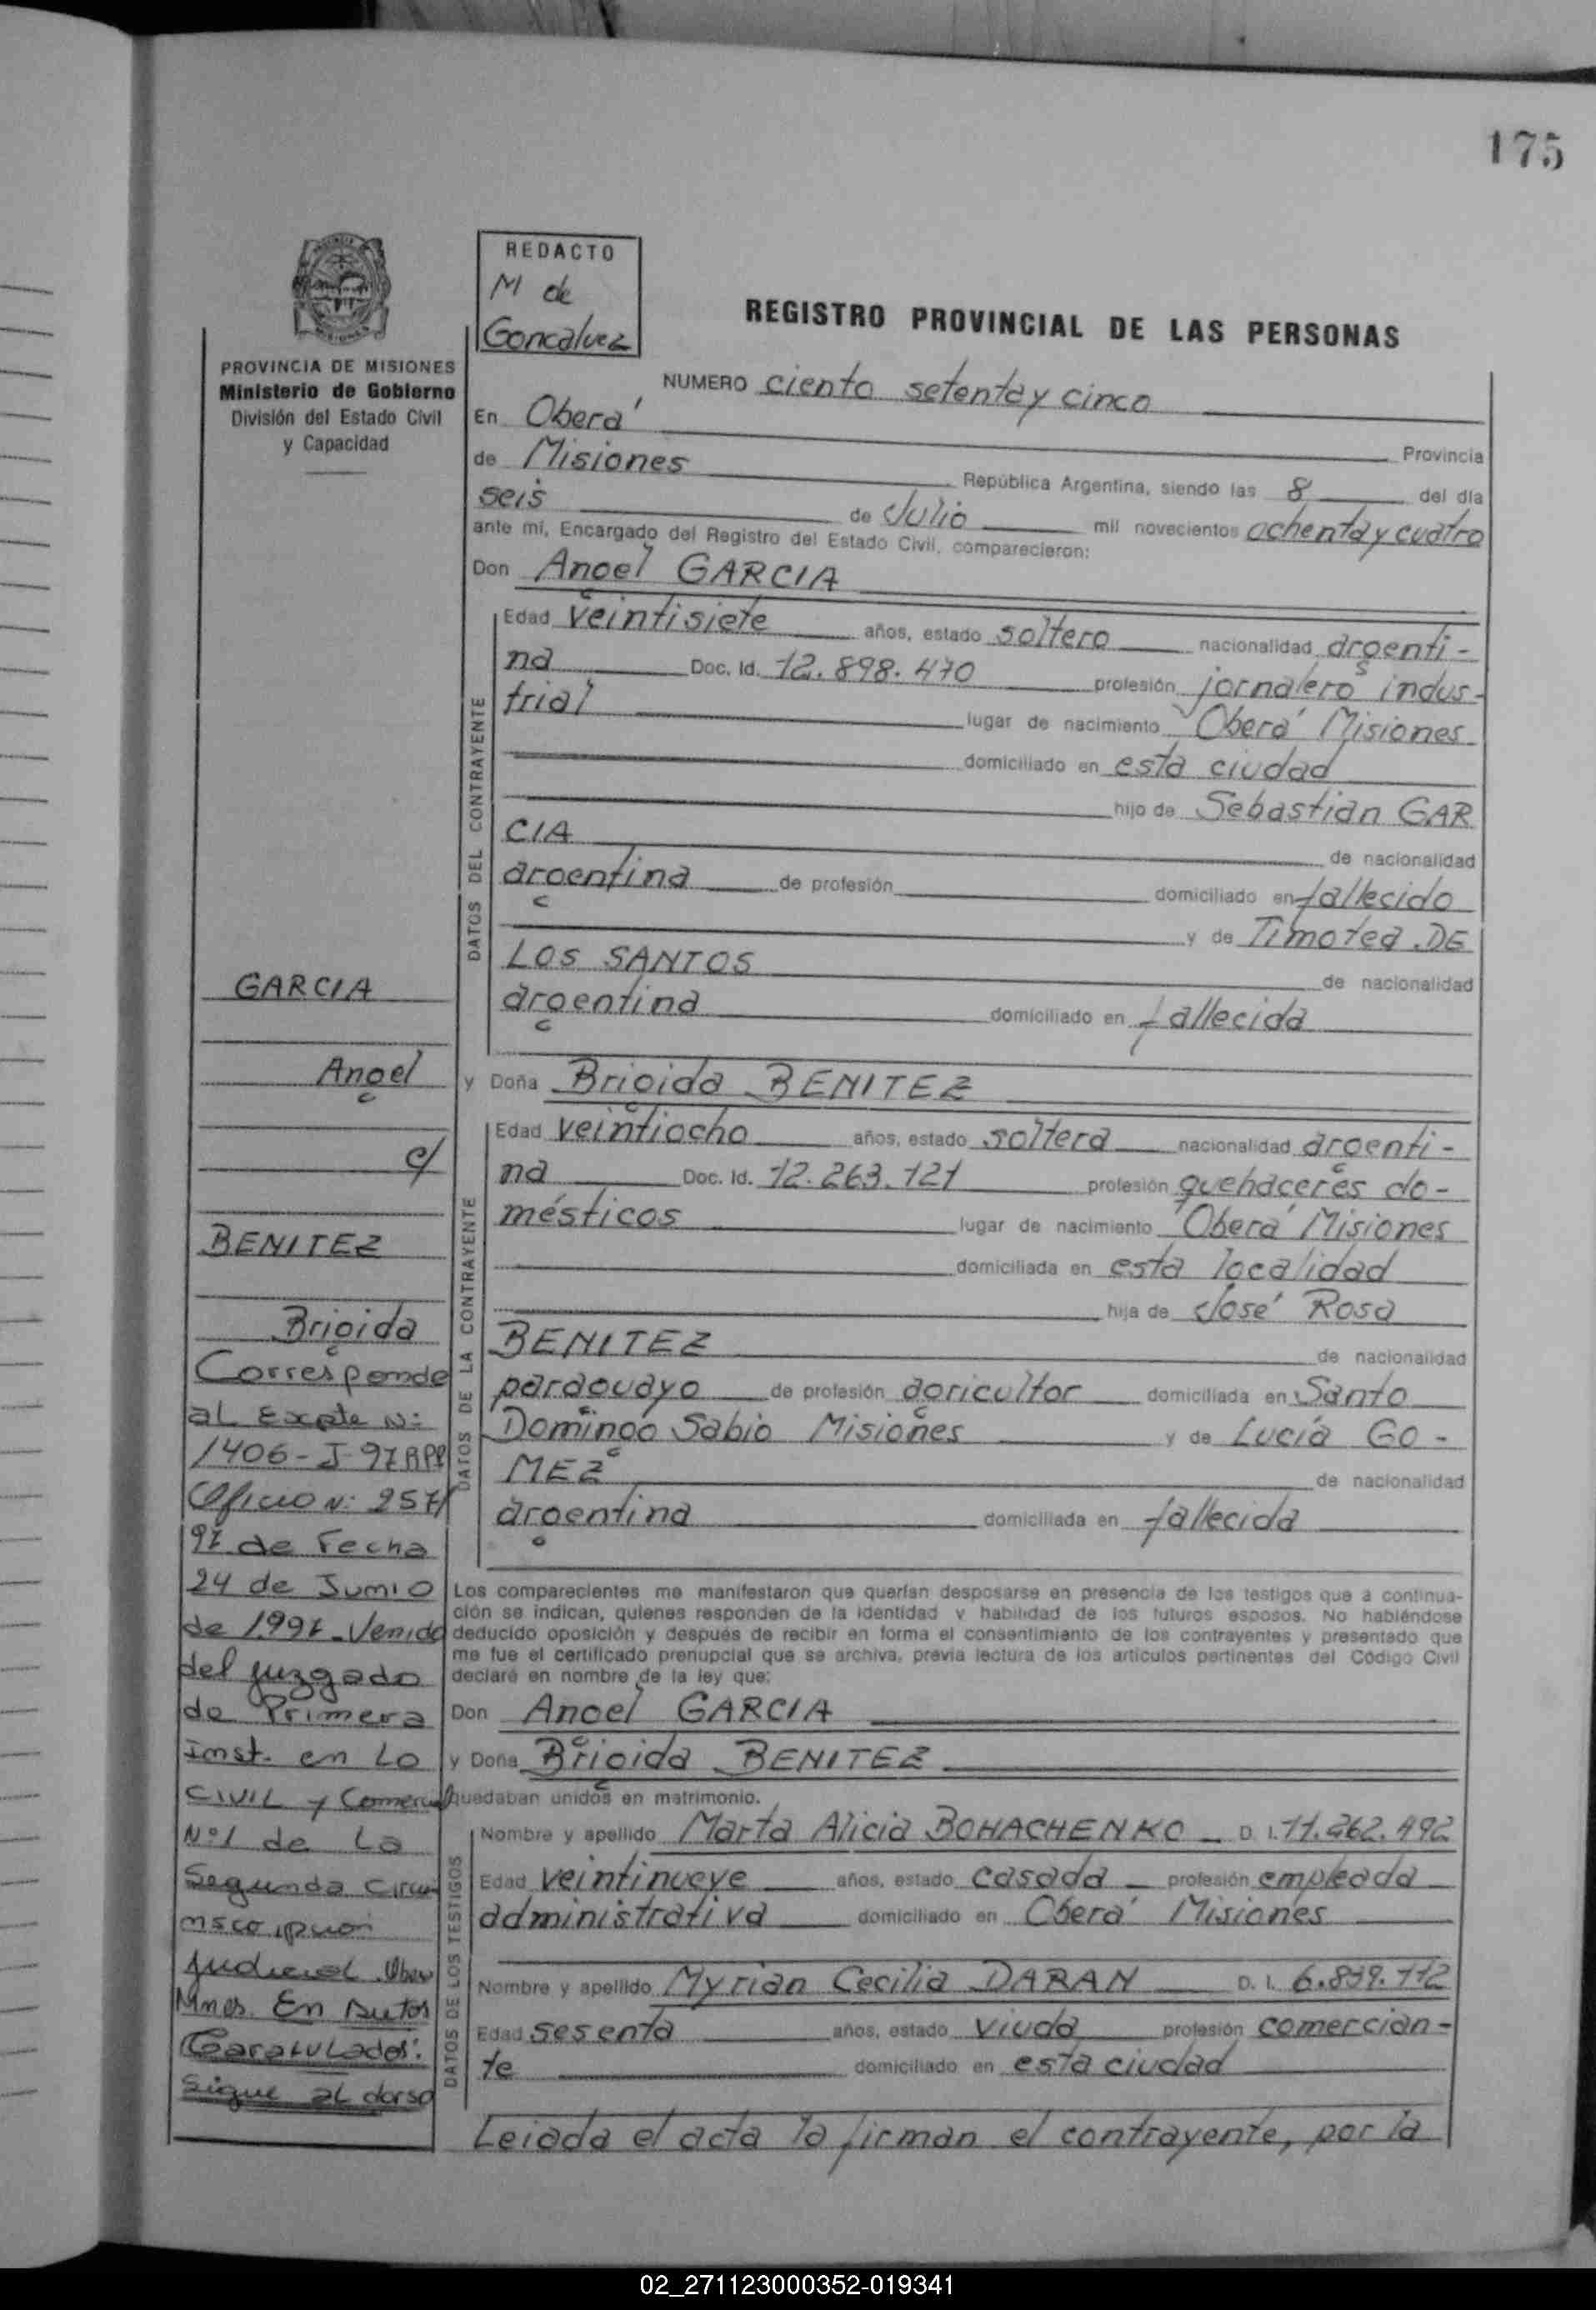 175
REDACTO
M de
Goncalvez
REGISTRO PROVINCIAL DE LAS PERSONAS
PROVINCIA DE MISIONES
Ministerio de Gobierno
División del Estado Civil
y Capacidad
NUMERO ciento setenta y cinco
En Oberá Provincia
de Misiones República Argentina, siendo las 8 del día
seis de Julio mil novecientos ochenta y cuatro
ante mí, Encargado del Registro del Estado Civil, comparecieron:
Don Angel GARCIA
DATOS DEL CONTRAYENTE
Edad veintisiete años, estado soltero nacionalidad argenti-
na Doc. Id. 12.898.470 profesión jornalero indus-
trial lugar de nacimiento Oberá Misiones
domiciliado en esta ciudad
hijo de Sebastian GAR
CIA de nacionalidad
argentina de profesión domiciliado en fallecido
y de Timotea DE
LOS SANTOS de nacionalidad
argentina domiciliado en fallecida
y Doña Brigida BENITEZ
DATOS DE LA CONTRAYENTE
Edad veintiocho años, estado soltera nacionalidad argenti-
na Doc. Id. 12.263.121 profesión quehaceres do-
mésticos lugar de nacimiento Oberá Misiones
domiciliada en esta localidad
hija de José Rosa
BENITEZ de nacionalidad
paraguayo de profesión agricultor domiciliada en Santo
Domingo Sabio Misiones y de Lucía GO-
MEZ de nacionalidad
argentina domiciliada en fallecida
Los comparecientes me manifestaron que querían desposarse en presencia de los testigos que a continua-
ción se indican, quienes responden de la identidad y habilidad de los futuros esposos. No habiéndose
deducido oposición y después de recibir en forma el consentimiento de los contrayentes y presentado que
me fue el certificado prenupcial que se archiva, previa lectura de los artículos pertinentes del Código Civil
declaré en nombre de la ley que:
Don Angel GARCIA
y Doña Brigida BENITEZ
quedaban unidos en matrimonio.
DATOS DE LOS TESTIGOS
Nombre y apellido Marta Alicia BOHACHENKO D. I. 11.262.492
Edad veintinueve años, estado casada profesión empleada
administrativa domiciliado en Oberá Misiones
Nombre y apellido Myrian Cecilia DARAN D. I. 6.839.112
Edad sesenta años, estado viuda profesión comercian-
te domiciliado en esta ciudad
Leiada el acta la firman el contrayente, por la
GARCIA
Angel
c/
BENITEZ
Brigida
Corresponde
al Expte N:
1406-J-97 RPP
Oficio N: 257/
97 de Fecha
24 de Junio
de 1997- Venido
del juzgado
de Primera
Inst. en Lo
CIVIL y Comercial
Nº1 de La
Segunda Circun
nscripcion
Judicial Obera
Mnes. En Autos
Caratulados:
Sigue al dorso
02_271123000352-019341